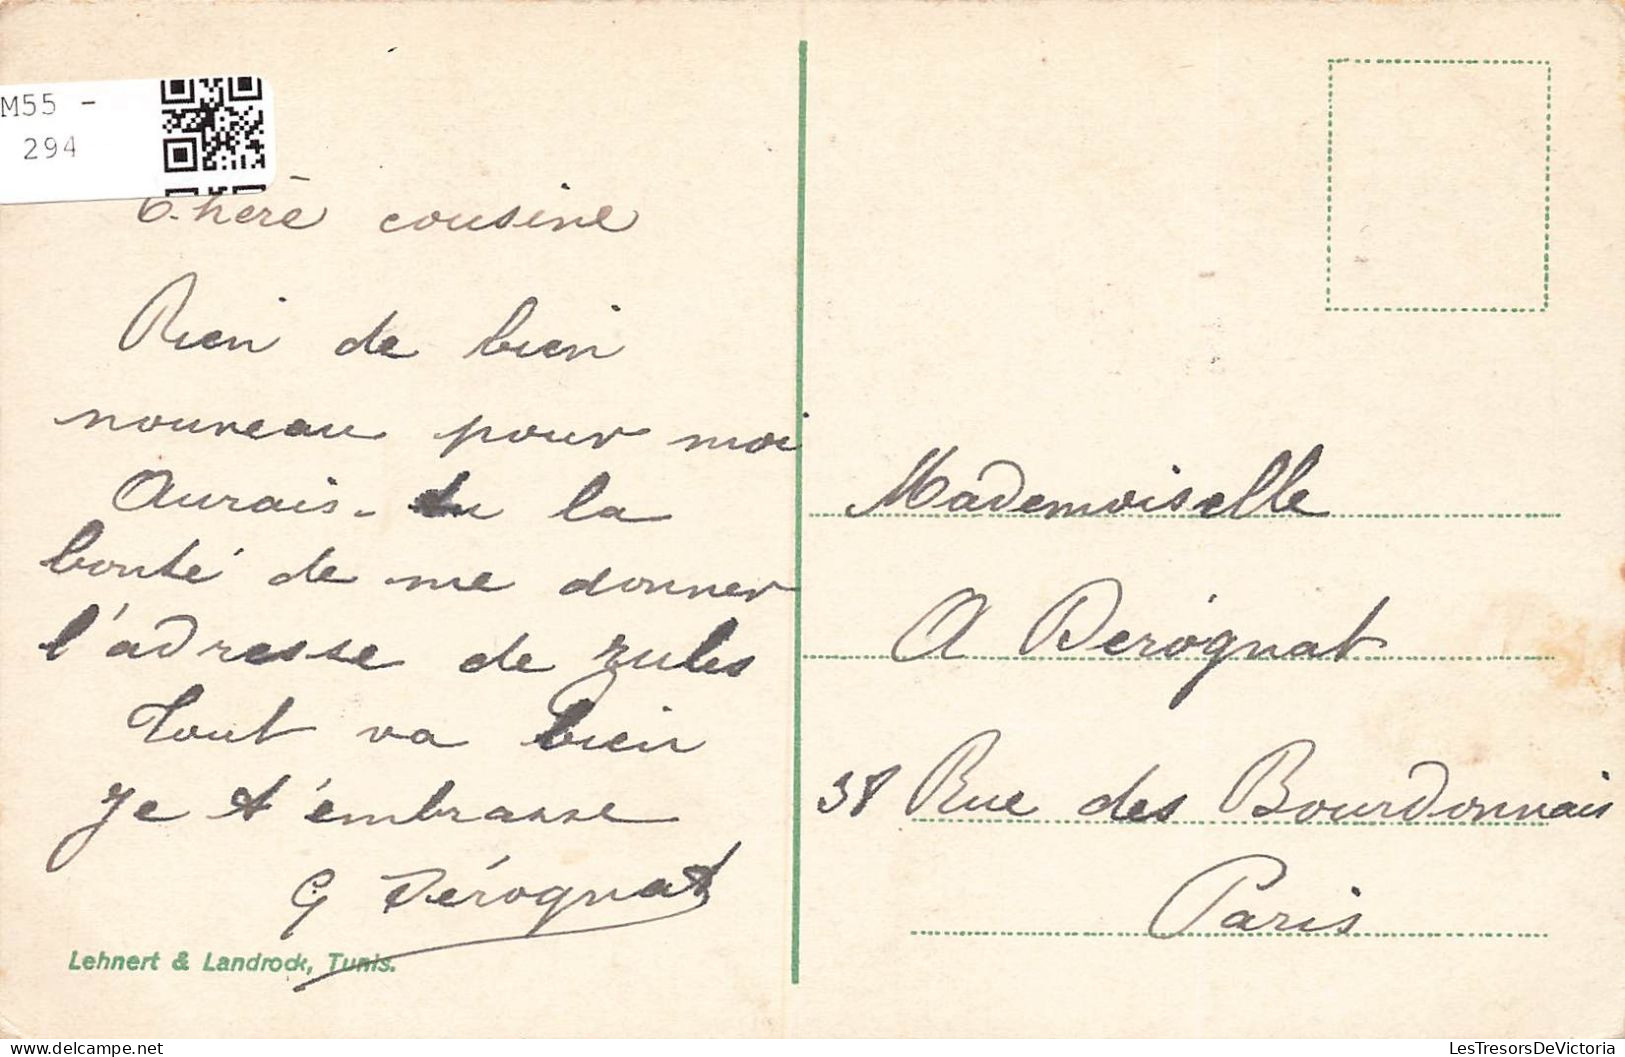 M55 -
294
Chère cousine
Rien de bien
nouveau pour moi
Aurais-tu la
bonté de me donner
l'adresse de Jules
Tout va bien
Je t'embrasse
G Dérognat
Lehnert & Landrock, Tunis.
Mademoiselle
A Dérognat
38 Rue des Bourdonnais
Paris
LesTresorsDeVictoria